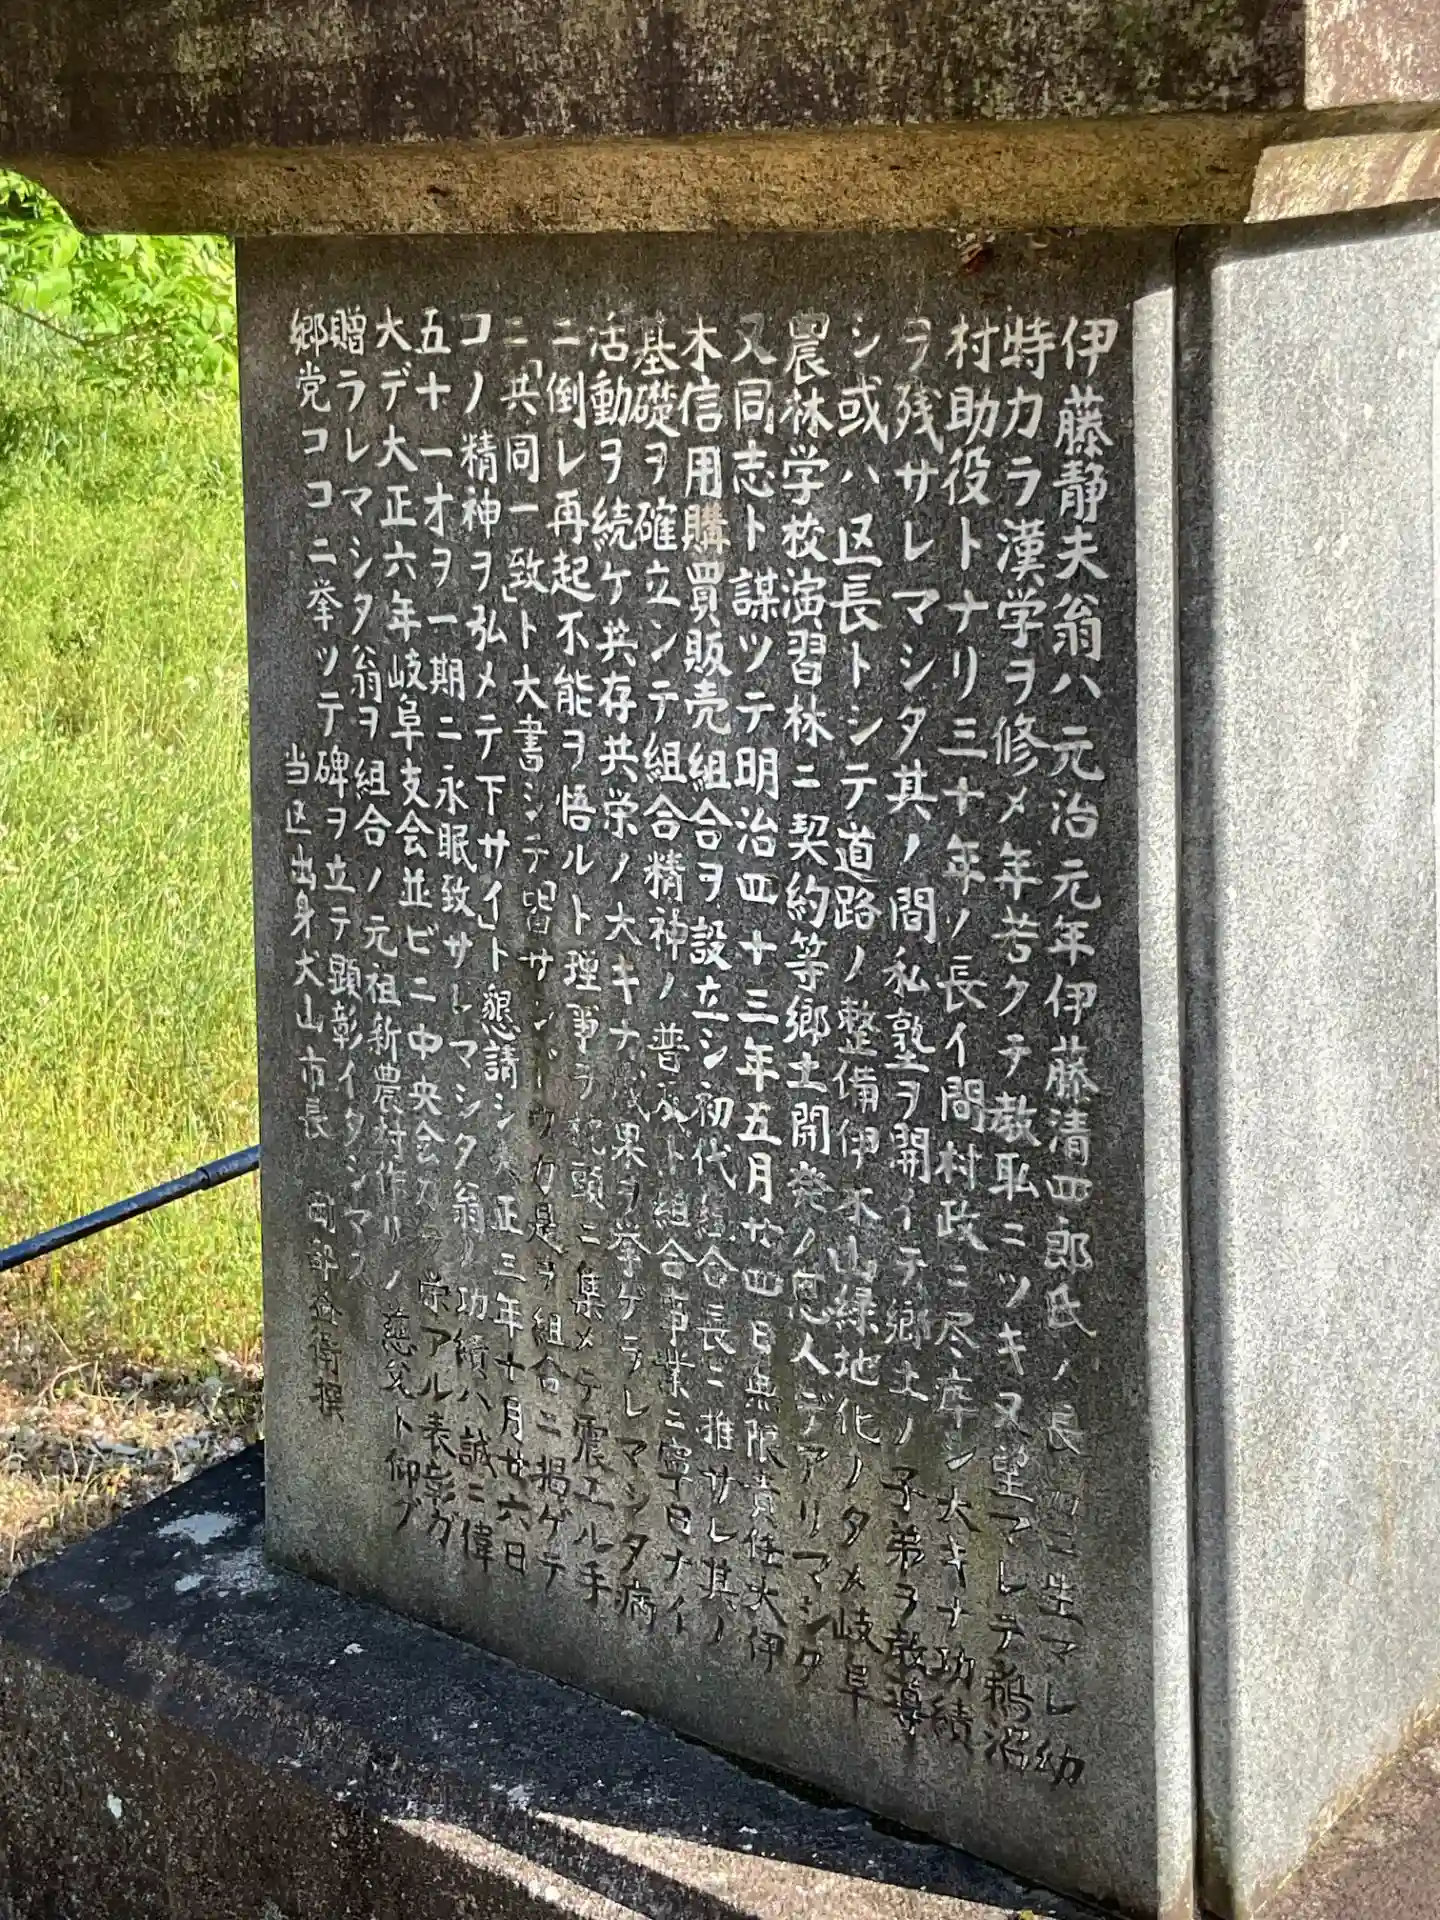 伊藤静夫翁ハ元治元年伊藤清四郎氏ノ長男ニ生マレ幼
特カラ漢学ヲ修メ年若クテ教職ニツキ又望マレテ鵜沼
村助役トナリ三十年ノ長イ間村政ニ尽庠シ大キナ功績
ヲ残サレマシタ其ノ間私塾ヲ開イテ郷土ノ子弟ヲ教導
シ或ハ区長トシテ道路ノ整備伊木山緑地化ノタメ岐阜
農林学校演習林ニ契約等郷土開発ノ恩人デアリマシタ
又同志ト謀ツテ明治四十三年五月廿四日無限責任大伊
木信用購買販売組合ヲ設立シ初代組合長ニ推サレ其ノ
基礎ヲ確立シテ組合精神ノ普及ト組合事業ニ寧日ナイ
活動ヲ続ケ共存共栄ノ大キナ成果ヲ挙ゲラレマシタ病
ニ倒レ再起不能ヲ悟ルト理事ヲ枕頭ニ集メテ震エル手
ニ「共同一致」ト大書シテ「皆サン ドウカ是ヲ組合ニ掲ゲテ
コノ精神ヲ弘メテ下サイ」ト懇請シ大正三年十月廿六日
五十一才ヲ一期ニ永眠致サレマシタ翁ノ功績ハ誠ニ偉
大デ大正六年岐阜支会並ビニ中央会カラ栄アル表彰ガ
贈ラレマシタ翁ヲ組合ノ元祖新農村作リノ慈父ト仰ブ
郷党ココニ挙ツテ碑ヲ立テ顕彰イタシマス
当区出身犬山市長 岡部 撰